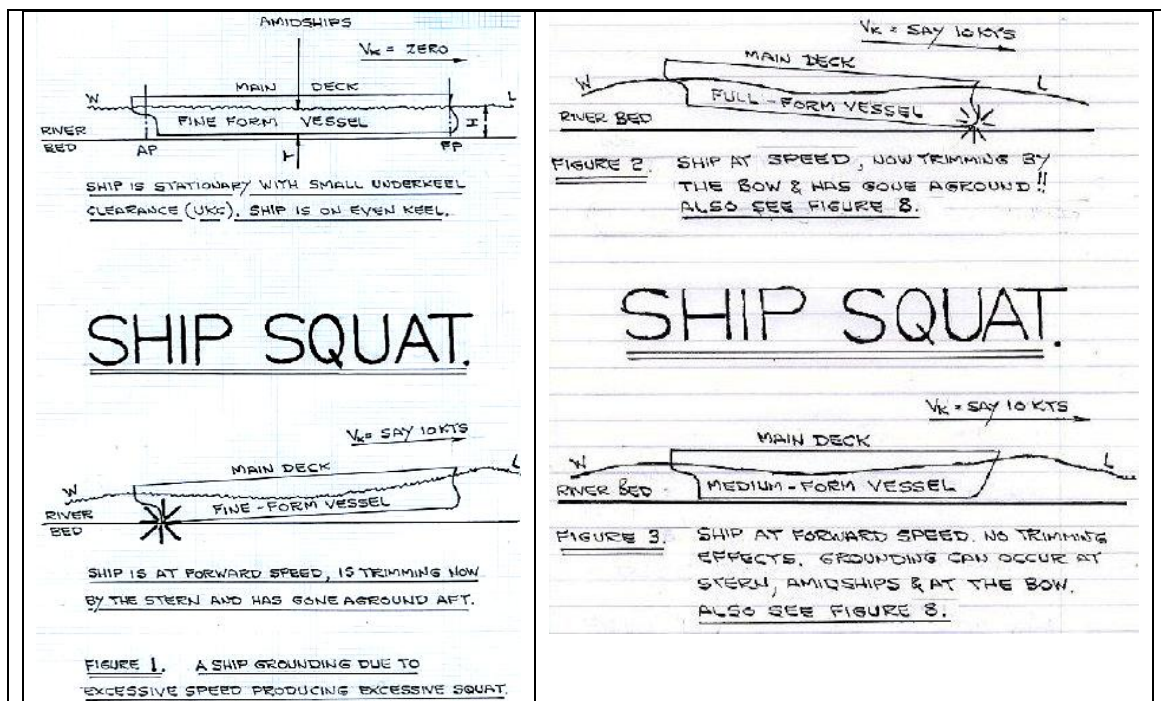 AMIDSHIPS
VK = ZERO
MAIN DECK
W
L
FINE FORM VESSEL
H
RIVER
BED
AP
T
FP
SHIP IS STATIONARY WITH SMALL UNDERKEEL
CLEARANCE (UKC). SHIP IS ON EVEN KEEL.
SHIP SQUAT.
VK = SAY 10 KTS
MAIN DECK
W
L
FINE-FORM VESSEL
RIVER
BED
SHIP IS AT FORWARD SPEED, IS TRIMMING NOW
BY THE STERN AND HAS GONE AGROUND AFT.
FIGURE 1. A SHIP GROUNDING DUE TO
EXCESSIVE SPEED PRODUCING EXCESSIVE SQUAT.
VK = SAY 10 KTS
MAIN DECK
W
L
FULL-FORM VESSEL
RIVER BED
FIGURE 2. SHIP AT SPEED, NOW TRIMMING BY
THE BOW & HAS GONE AGROUND!!
ALSO SEE FIGURE 8.
SHIP SQUAT.
VK = SAY 10 KTS
MAIN DECK
W
L
MEDIUM-FORM VESSEL
RIVER BED
FIGURE 3. SHIP AT FORWARD SPEED. NO TRIMMING
EFFECTS. GROUNDING CAN OCCUR AT
STERN, AMIDSHIPS & AT THE BOW.
ALSO SEE FIGURE 8.